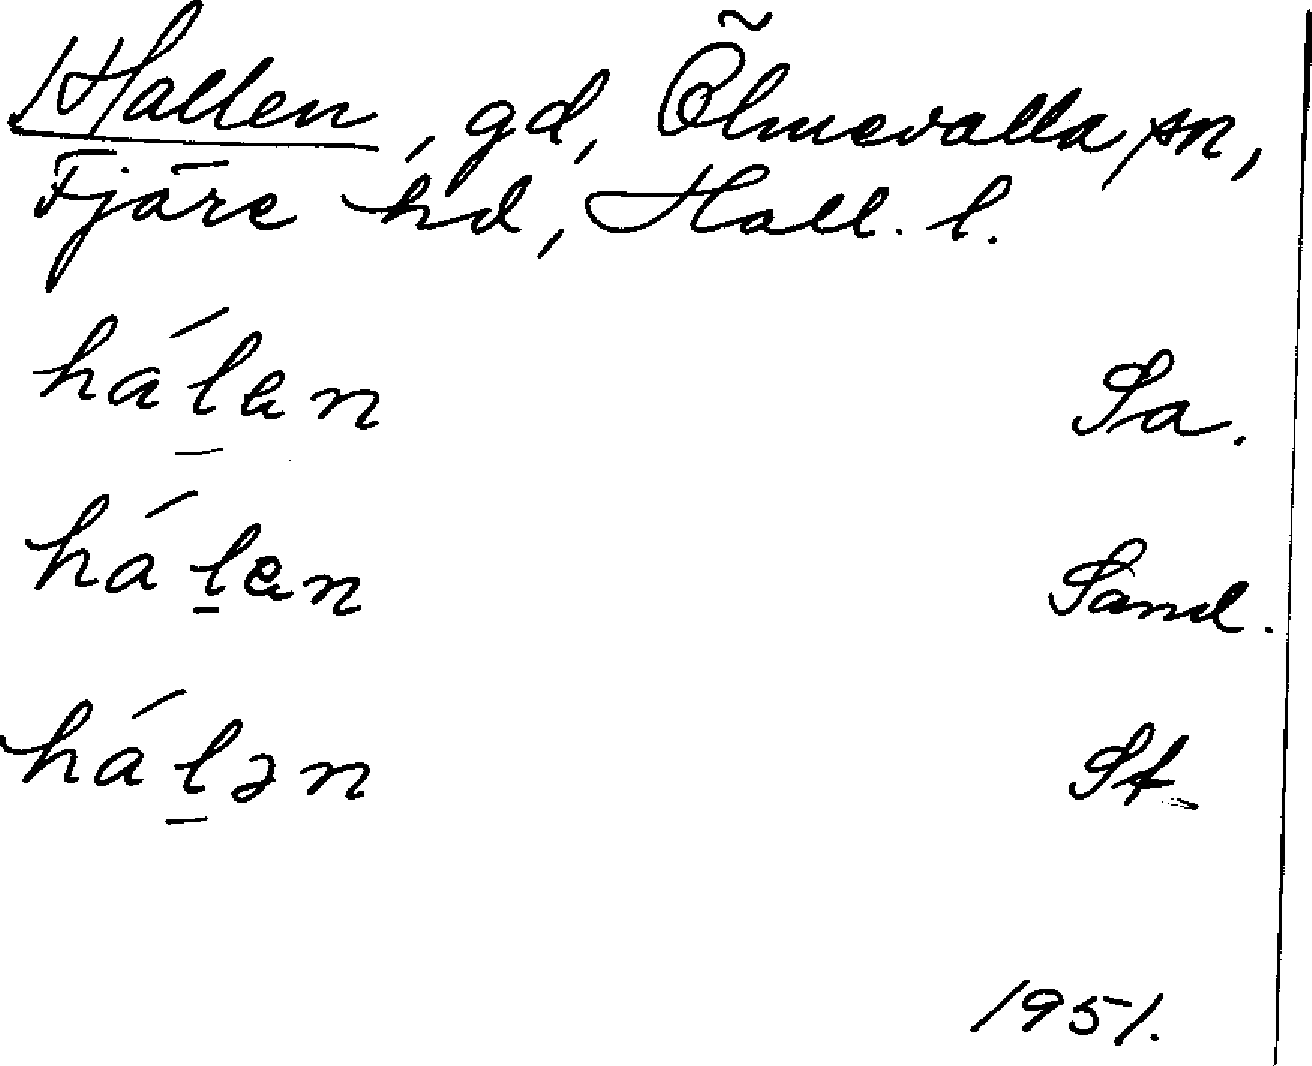 Hallen, gd, Ölmevalla sn,
Fjäre hd, Hall. l.
hál̠ɐn Sa.
hál̠ɐn Sand.
hál̠ən St.
1951.